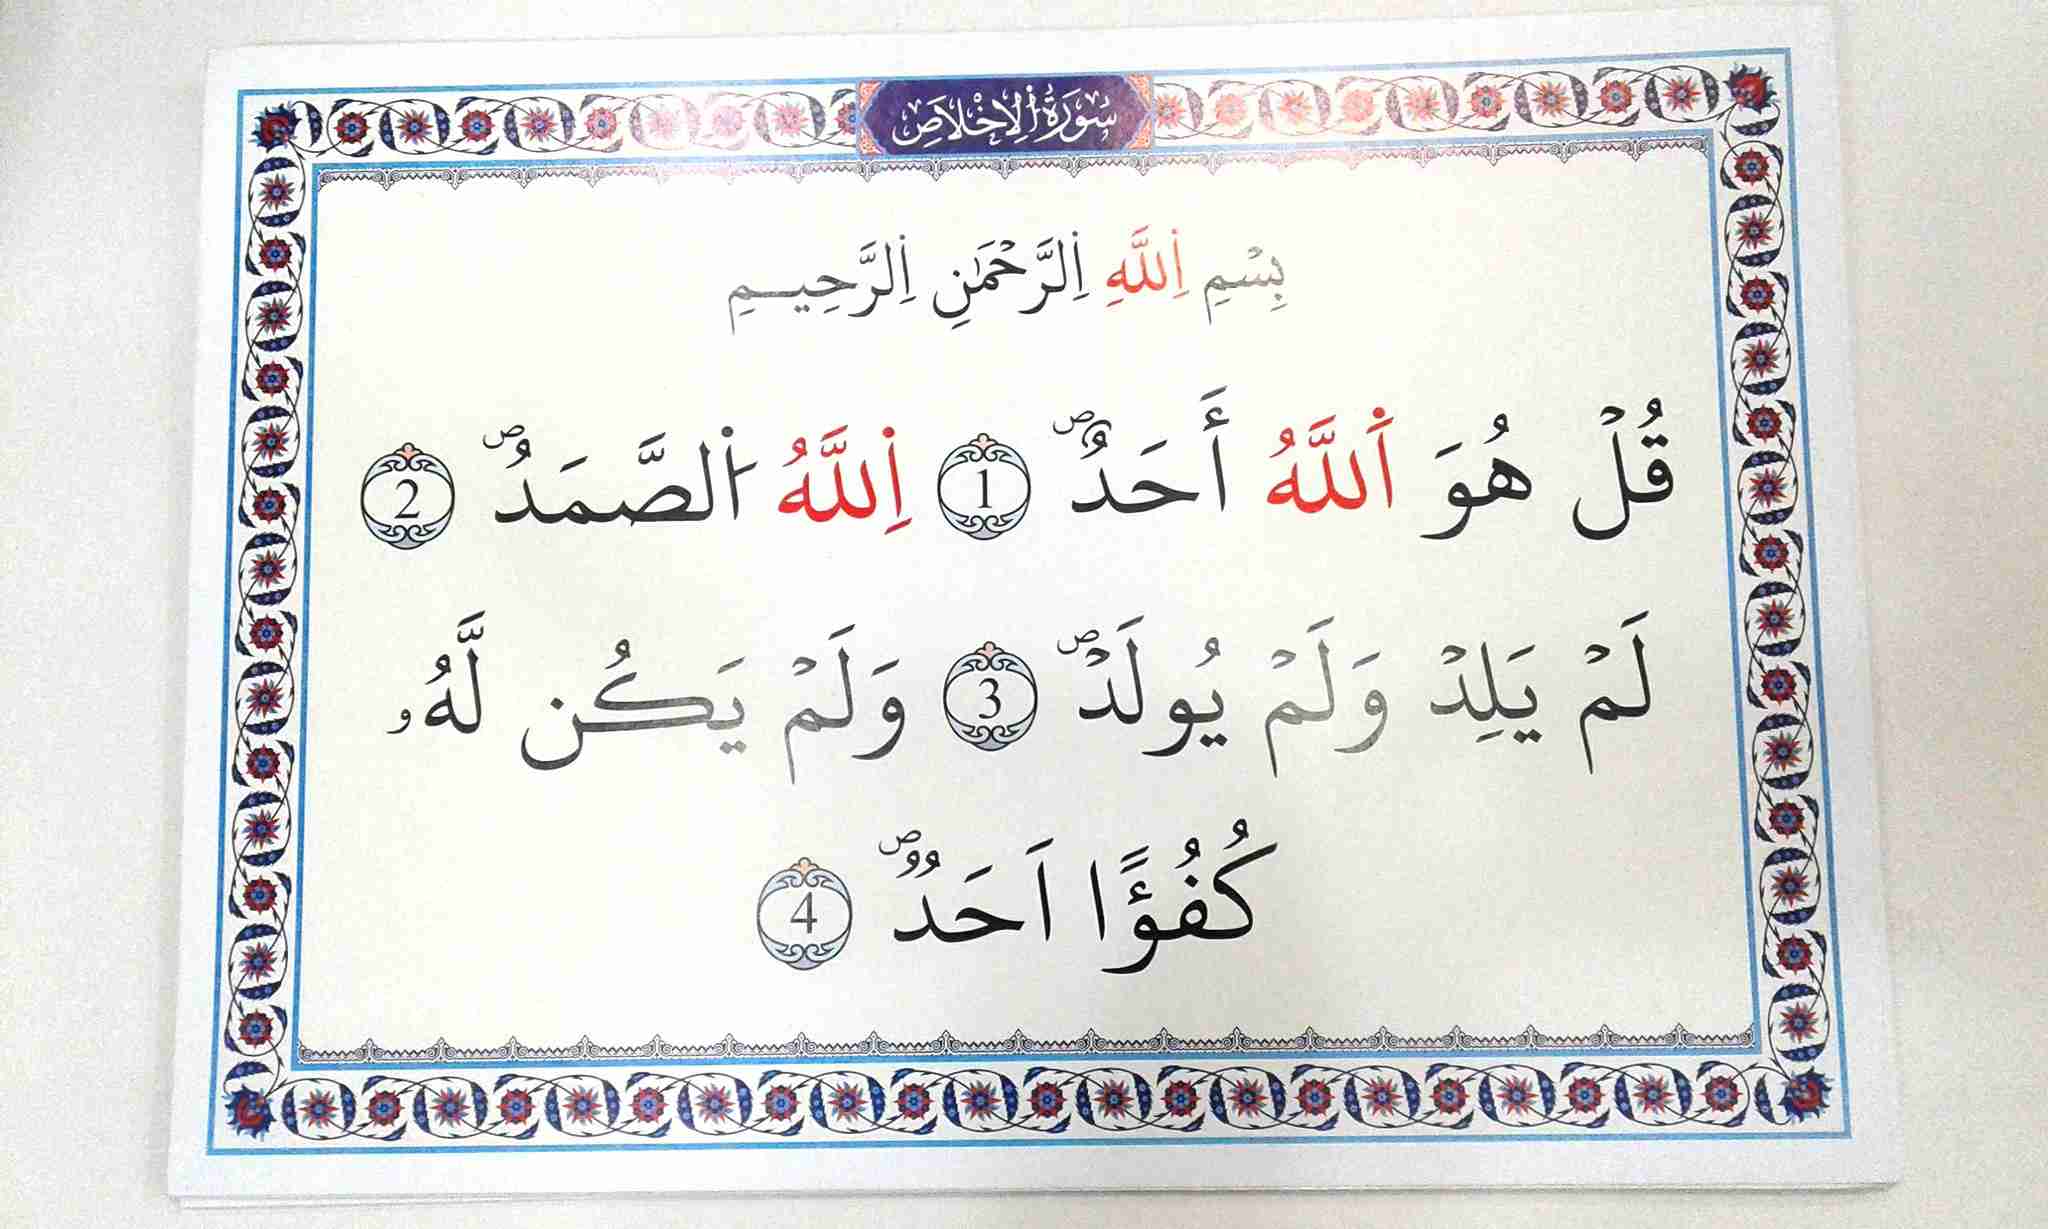 سُورَةُ الْاِخْلَاصِ
بِسْمِ اِ۬للَّهِ اِ۬لرَّحْمَٰنِ اِ۬لرَّحِيمِ
قُلْ هُوَ اَ۬للَّهُ أَحَدٌۖ 1 اِ۬للَّهُ اُ۬لصَّمَدُۖ 2
لَمْ يَلِدْ وَلَمْ يُولَدْۖ 3 وَلَمْ يَكُن لَّهُۥ
كُفُؤًا اَحَدٌۖ 4